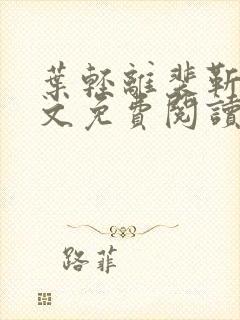 葉輕離裴靳
文免費閱讀
路菲